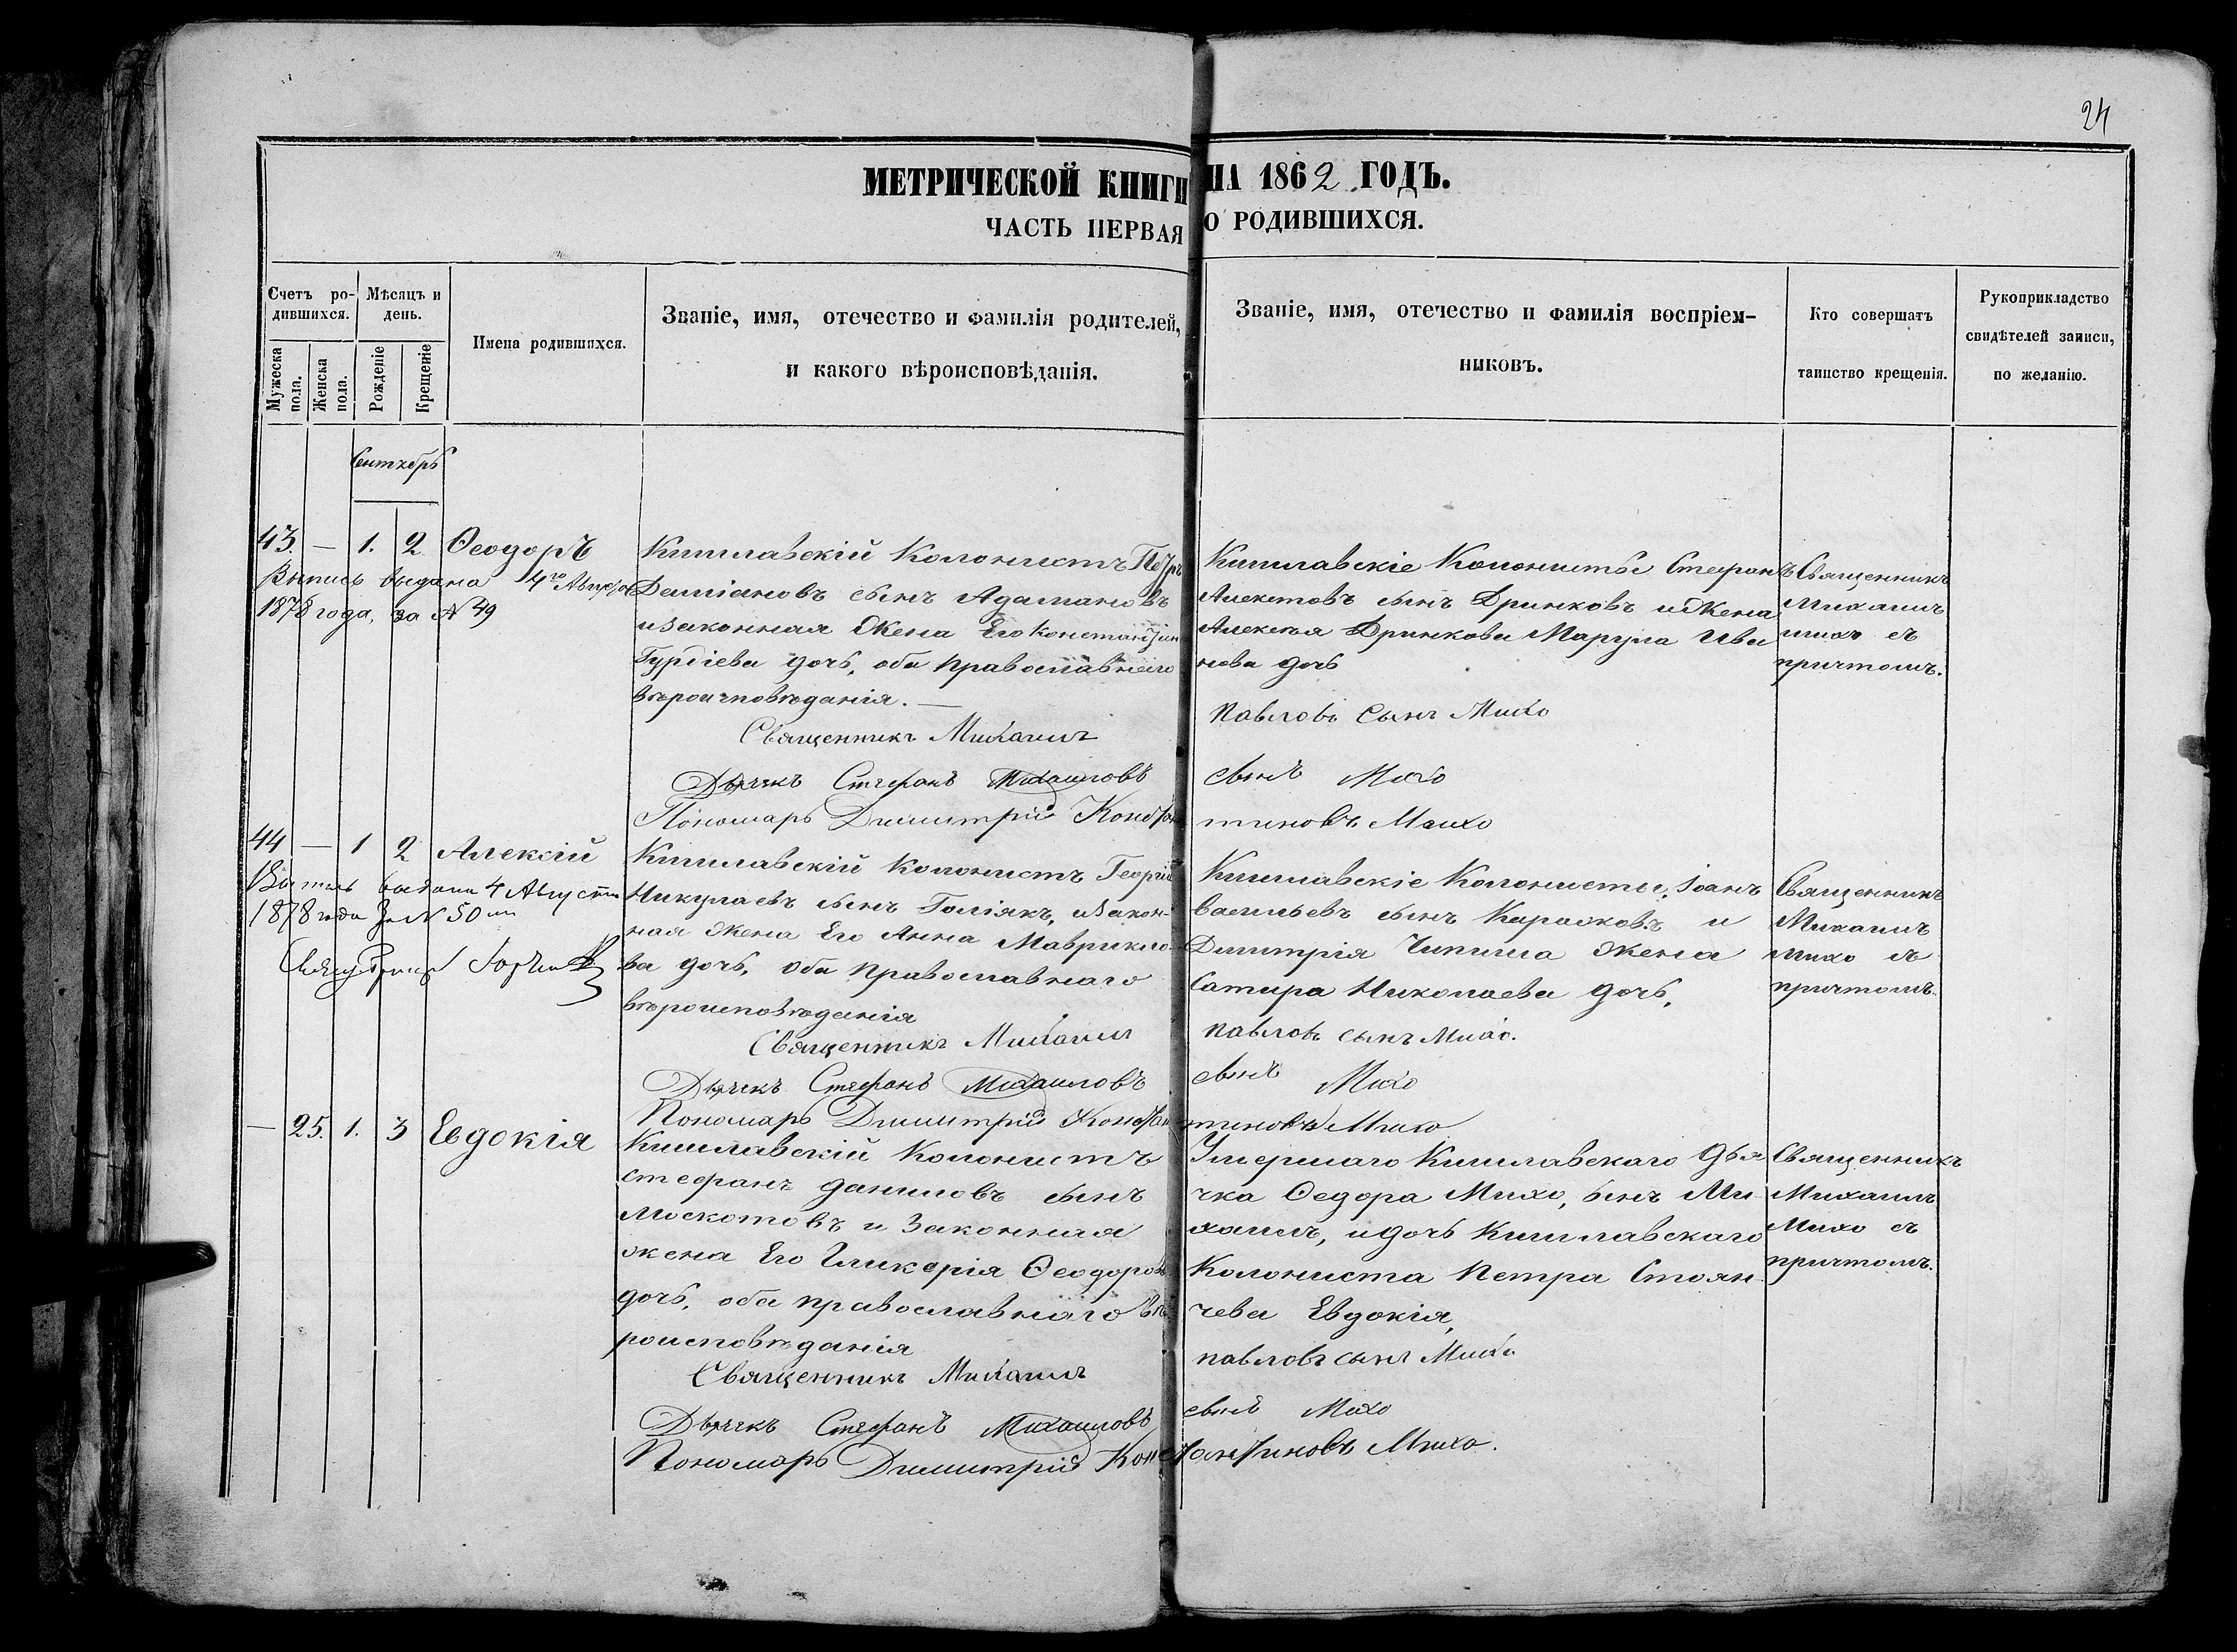 24
МЕТРИЧЕСКОЙ КНИГИ НА 1862 ГОДЪ.
ЧАСТЬ ПЕРВАЯ О РОДИВШИХСЯ.
Счетъ ро-
дившихся.
Мѣсяцъ и
день.
Мужеска
пола.
Женска
пола.
Рожденіе
Крещеніе
Имена родившихся.
Званіе, имя, отечество и фамилія родителей,
и какого вѣроисповѣданія.
Званіе, имя, отечество и фамилія воспріем-
никовъ.
Кто совершатъ
таинство крещенія.
Рукоприкладство
свидѣтелей записи,
по желанію.
Сентябрь
43. — 1. 2 Ѳеодоръ
Выпись выдана 4го Августа
1878 года, за № 49
Кишлавскій Колонистъ Петръ
Даміановъ сынъ Адамановъ
и законная Жена Его
Гургіева дочь, оба православнаго
вѣроисповѣданія. —
Священникъ Михаилъ Павловъ сынъ Михо
Дьячекъ Стефанъ Михаиловъ сынъ Михо
Пономарь Димитрій Константиновъ Михо
Кишлавскіе Колонисты Стефанъ
сынъ Дринковъ и Жена
Алексѣя Дринкова Марула Ива
нова дочь
Священникъ
Михаилъ
михо съ
причтомъ.
44 — 1 2 Алексій
Выпись выдана 4 Августа
1878 года За № 50
Священникъ
Кишлавскій Колонистъ Георгій
Никулаевъ сынъ Голіякъ, и закон-
ная Жена Его Анна Маврикio-
ва дочь, оба православнаго
вѣроисповѣданія
Священникъ Михаилъ Павловъ сынъ Михо.
Дьячекъ Стефанъ Михаиловъ сынъ Михо
Пономарь Димитрій Константиновъ Михо
Кишлавскіе Колонисты, Іоанъ
васильевъ сынъ и
Дмитрія Чипила Жена
Сатира Николаева дочь,
Священникъ
Михаилъ
михо съ
причтомъ.
— 25. 1. 3 Евдокія
Кишлавскій Колонистъ
стефанъ даниловъ сынъ
Москотовъ и законная
жена Его Гликерія Ѳеодорова
дочь, оба православнаго вѣ-
роисповѣданія
Священникъ Михаилъ павловъ сынъ Михо
Дьячекъ Стефанъ Михаиловъ сынъ Михо
Пономарь Димитрій Константиновъ Михо.
Умершаго Кишлавскаго дья
чка Ѳедора Михо, сынъ Ми-
хаилъ, и дочь Кишлавскаго
Колониста Петра Стоян-
чева Евдокія,
Священникъ
Михаилъ
Михо съ
причтомъ.